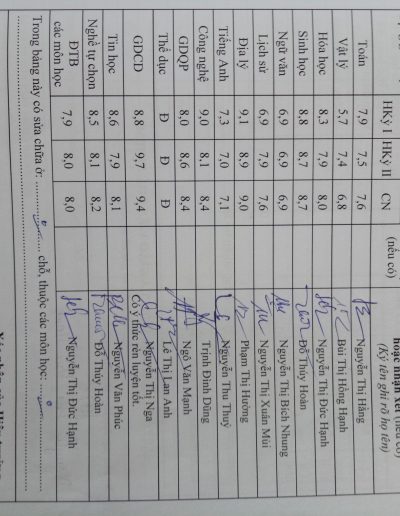 hoặc nhận xét (nếu có)
HKỳ I HKỳ II CN (nếu có) (Ký tên ghi rõ họ tên)
Toán 7,9 7,5 7,6 Nguyễn Thị Hằng
Vật lý 5,7 7,4 6,8 Bùi Thị Hồng Hạnh
Hóa học 8,3 7,9 8,0 Nguyễn Thị Đức Hạnh
Sinh học 8,8 8,7 8,7 Đỗ Thuý Hoàn
Ngữ văn 6,9 6,9 6,9 Nguyễn Thị Bích Nhung
Lịch sử 6,9 7,9 7,6 Nguyễn Thị Xuân Mùi
Địa lý 9,1 8,9 9,0 Phạm Thị Hường
Tiếng Anh 7,3 7,0 7,1 Nguyễn Thu Thuỷ
Công nghệ 9,0 8,1 8,4 Trịnh Đình Dũng
GDQP 8,0 8,6 8,4 Ngô Văn Mạnh
Thể dục Đ Đ Đ Lê Thị Lan Anh
GDCD 8,8 9,7 9,4 Nguyễn Thị Nga
Có ý thức rèn luyện tốt.
Tin học 8,6 7,9 8,1 Nguyễn Văn Phúc
Nghề tự chọn 8,5 8,1 8,2 Đỗ Thuý Hoàn
ĐTB
các môn học 7,9 8,0 8,0 Nguyễn Thị Đức Hạnh
Trong bảng này có sửa chữa ở: ........... chỗ, thuộc các môn học: ...........